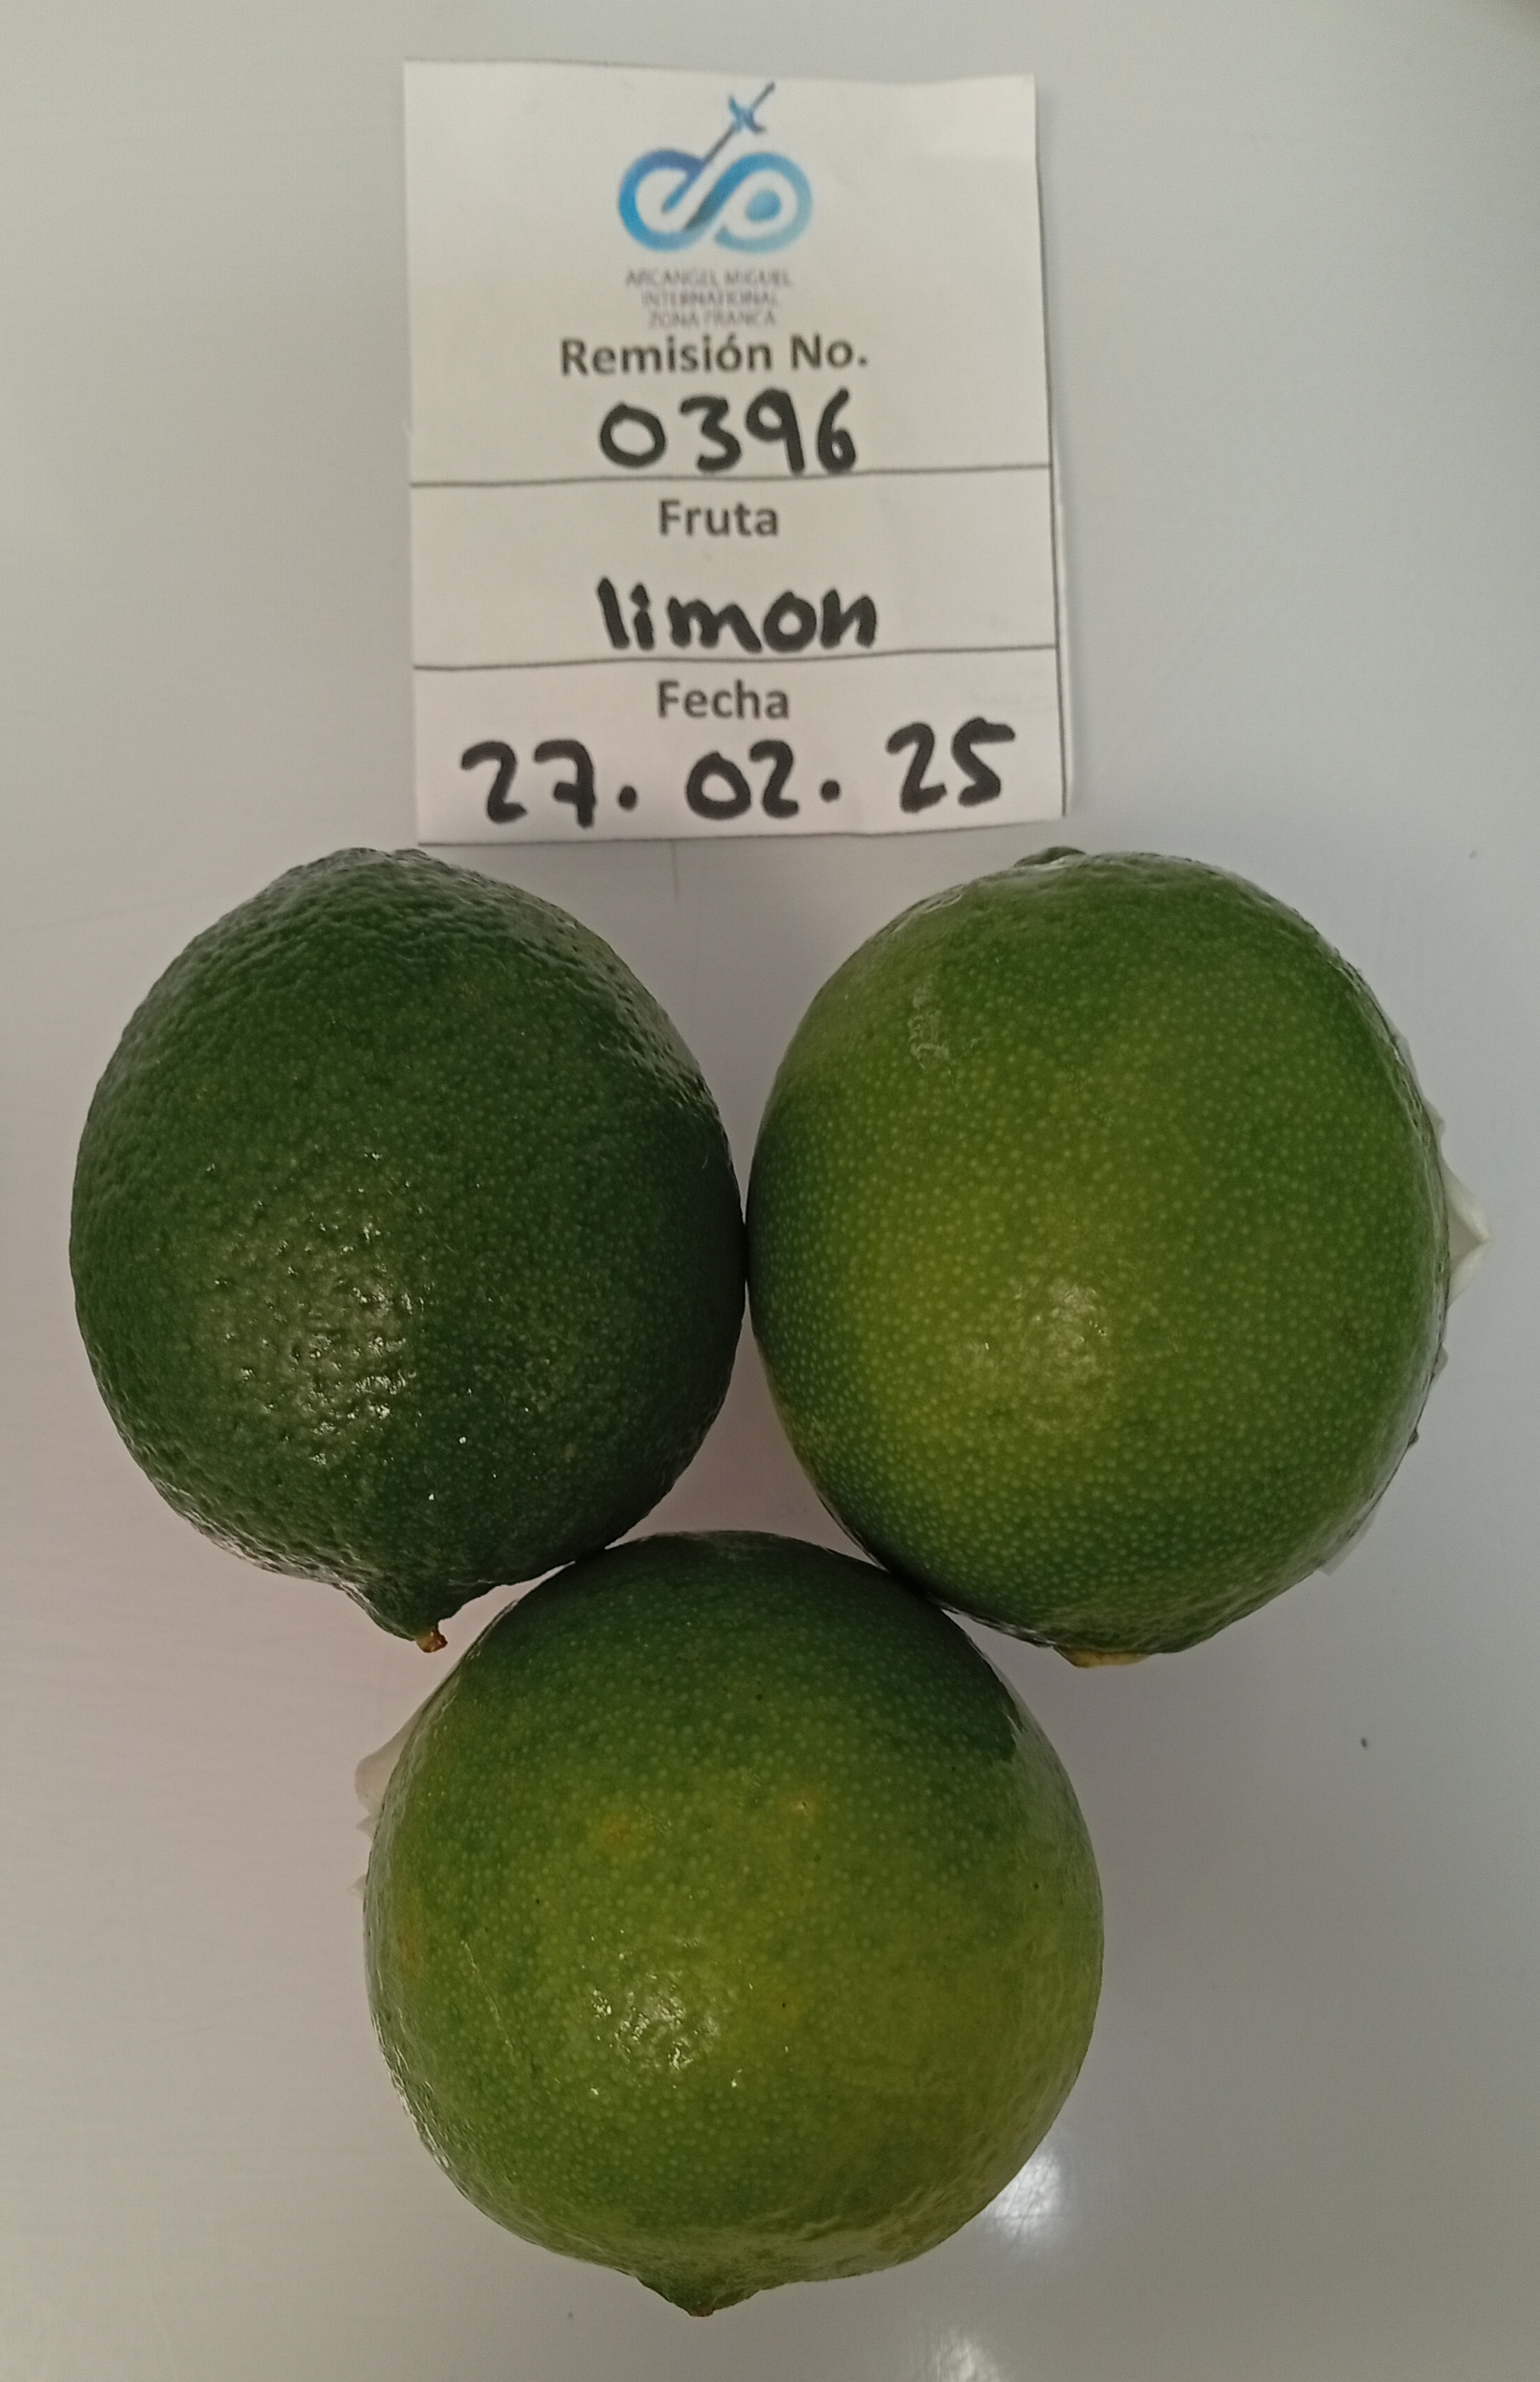 ARCANGEL MIGUEL
INTERNATIONAL
ZONA FRANCA
Remisión No.
0396
Fruta
limon
Fecha
27. 02. 25